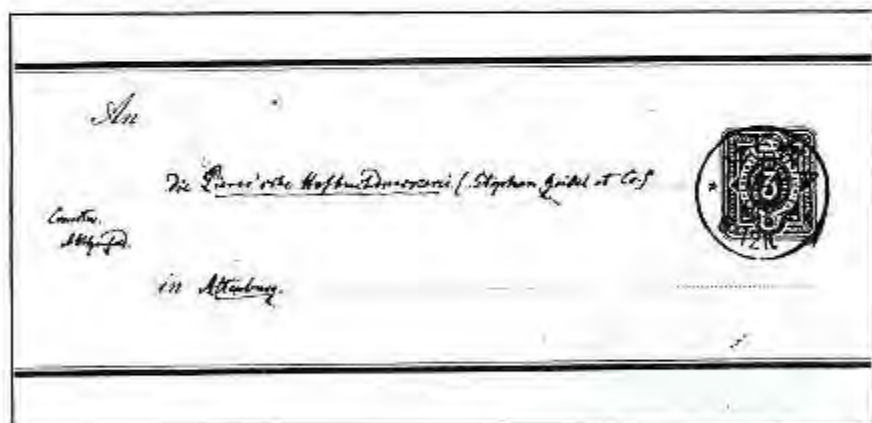 An
die Pierer'sche Hofbuchdruckerei (Stephan Geibel et Co.)
in Altenburg.
3
12N